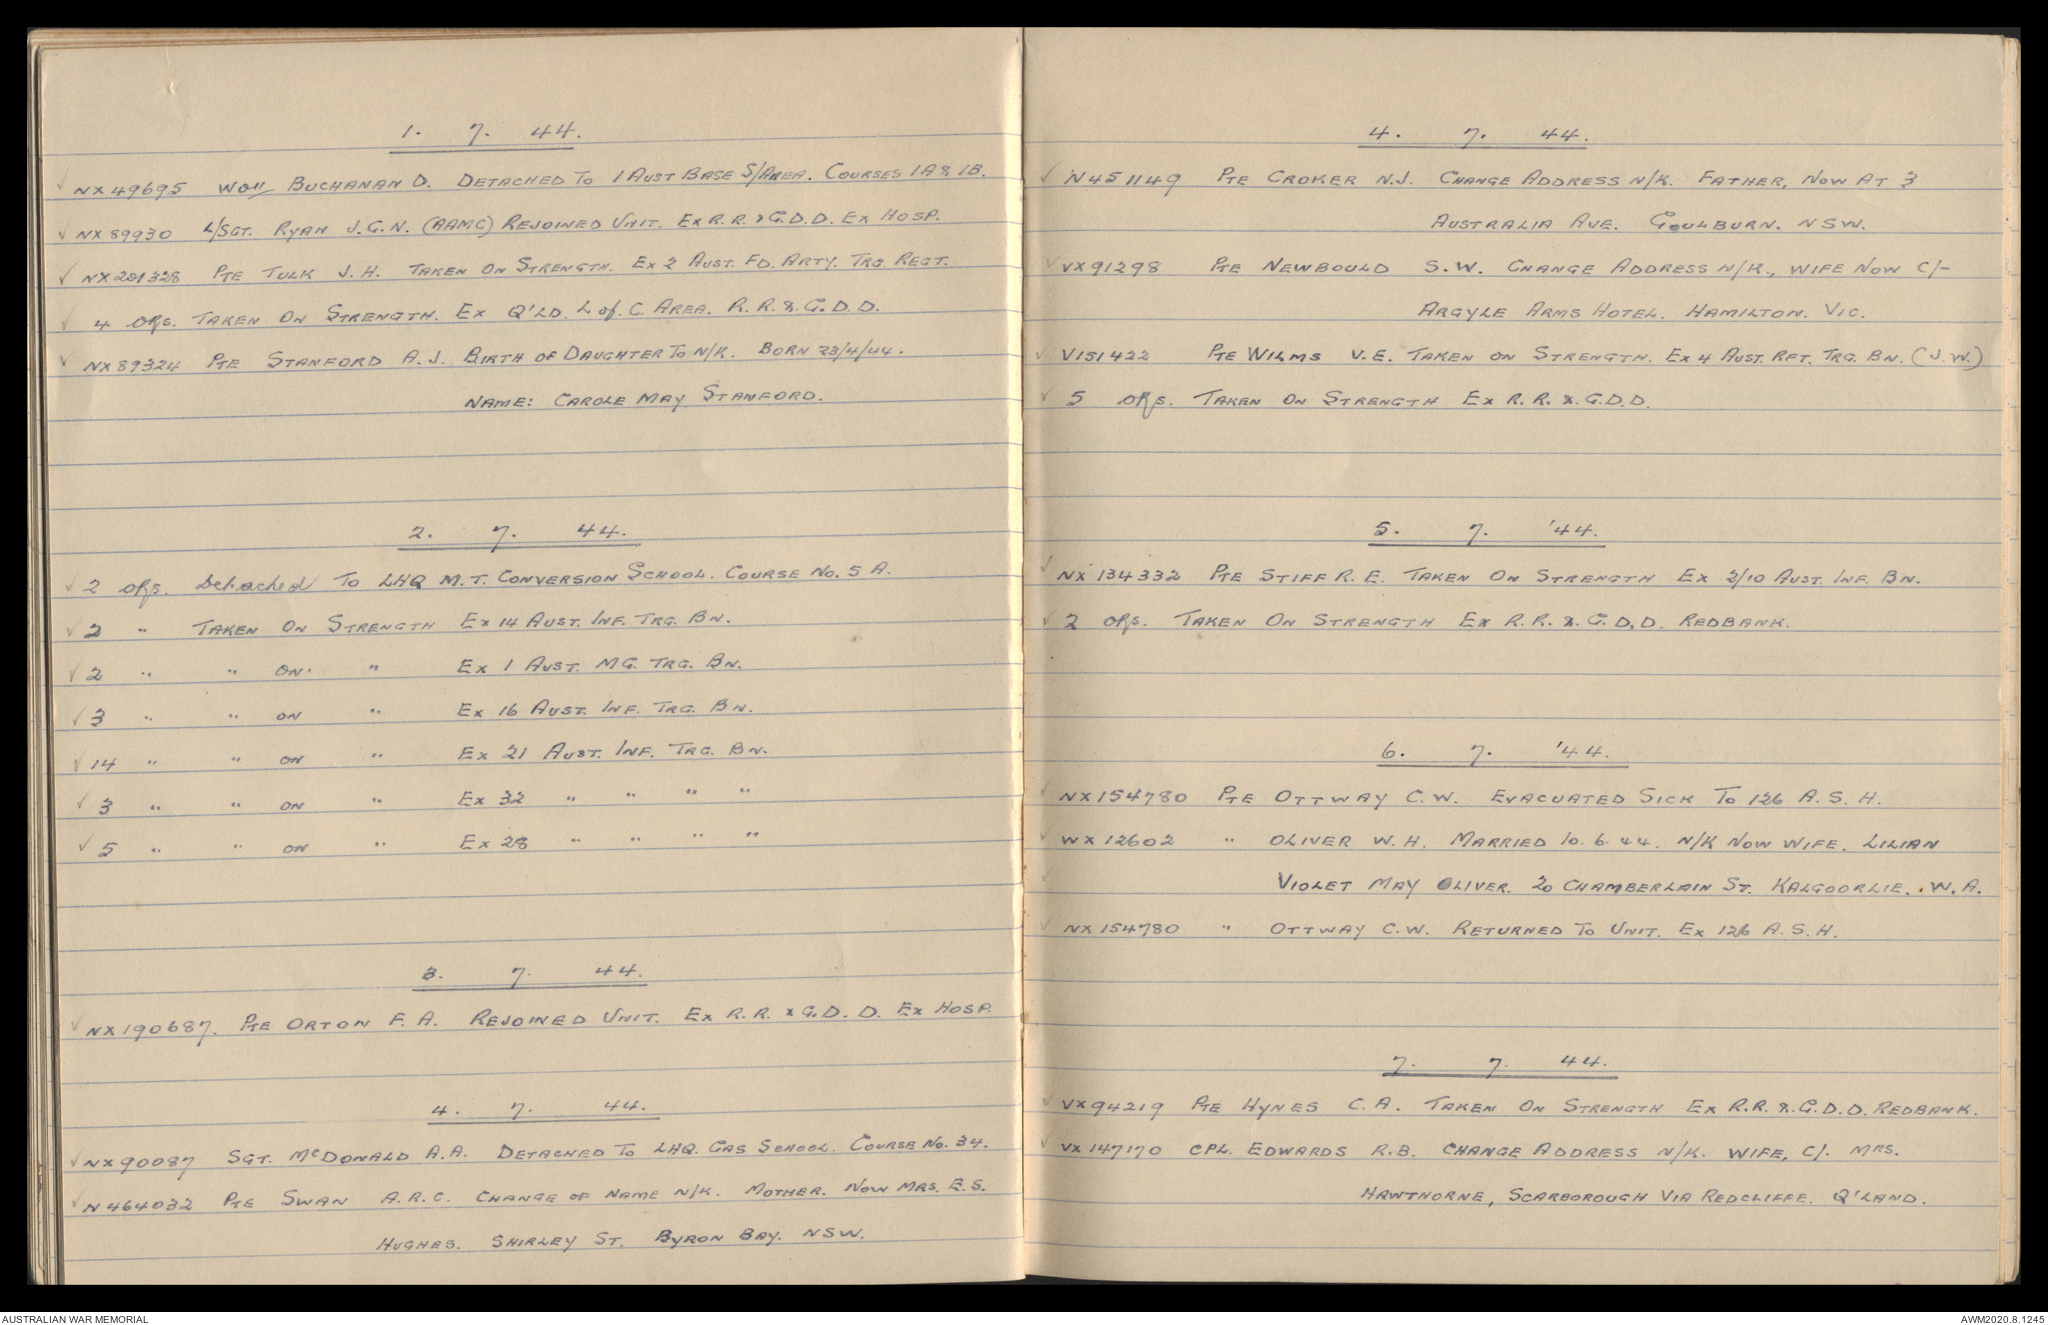 1. 7. 44.
✓ NX49695 WOII BUCHANAN D. DETACHED TO 1 AUST BASE S/AREA. COURSES 1A & 1B.
✓ NX89930 L/SGT. RYAN J.G.N. (AAMC) REJOINED UNIT. EX R.R. & G.D.D. EX HOSP.
✓ NX201328 PTE TULK J.H. TAKEN ON STRENGTH. EX 2 AUST. FD. ARTY. TRG. REGT.
✓ 4 ORs. TAKEN ON STRENGTH. EX Q'LD. L of. C. AREA. R.R. & G.D.D.
✓ NX89324 PTE STANFORD A.J. BIRTH OF DAUGHTER TO N/K. BORN 23/4/44.
NAME: CAROLE MAY STANFORD.
2. 7. 44.
✓ 2 ORs. Detached TO LHQ M.T. CONVERSION SCHOOL. COURSE NO. 5 A.
✓ 2 " TAKEN ON STRENGTH EX 14 AUST. INF. TRG. BN.
✓ 2 " " ON. " EX 1 AUST. MG. TRG. BN.
✓ 3 " " ON " EX 16 AUST. INF. TRG. BN.
✓ 14 " " ON " EX 21 AUST. INF. TRG. BN.
✓ 3 " " ON " EX 32 " " " "
✓ 5 " " ON " EX 28 " " " "
3. 7. 44.
✓ NX190687. PTE ORTON F.A. REJOINED UNIT. EX R.R. & G.D.D. EX HOSP.
4. 7. 44.
✓ NX90087 SGT. McDONALD A.A. DETACHED TO LHQ. GAS SCHOOL. COURSE NO. 34.
✓ N464032 PTE SWAN A.R.C. CHANGE OF NAME N/K. MOTHER. NOW MRS. E.S.
HUGHES. SHIRLEY ST. BYRON BAY. NSW.
4. 7. 44.
✓ N451149 PTE CROKER N.J. CHANGE ADDRESS N/K. FATHER, NOW AT 3
AUSTRALIA AVE. GOULBURN. NSW.
✓ VX91298 PTE NEWBOULD S.W. CHANGE ADDRESS N/K., WIFE NOW C/-
ARGYLE ARMS HOTEL. HAMILTON. VIC.
✓ V151422 PTE WILMS V.E. TAKEN ON STRENGTH. EX 4 AUST. RFT. TRG. BN. (J.W.)
✓ 5 ORs. TAKEN ON STRENGTH EX R.R. & G.D.D.
5. 7. '44.
✓ NX134332 PTE STIFF R.E. TAKEN ON STRENGTH EX 2/10 AUST. INF. BN.
✓ 2 ORs. TAKEN ON STRENGTH EX R.R. & G.D.D. REDBANK.
6. 7. '44.
✓ NX154780 PTE OTTWAY C.W. EVACUATED SICK TO 126 A.S.H.
✓ WX12602 " OLIVER W.H. MARRIED 10.6.44. N/K NOW WIFE. LILIAN
VIOLET MAY OLIVER. 20 CHAMBERLAIN ST. KALGOORLIE. W.A.
✓ NX154780 " OTTWAY C.W. RETURNED TO UNIT. EX 126 A.S.H.
7. 7. 44.
✓ VX94219 PTE HYNES C.A. TAKEN ON STRENGTH EX R.R. & G.D.D. REDBANK.
✓ VX147170 CPL. EDWARDS R.B. CHANGE ADDRESS N/K. WIFE, C/. MRS.
HAWTHORNE, SCARBOROUGH VIA REDCLIFFE. Q'LAND.
AUSTRALIAN WAR MEMORIAL
AWM2020.8.1245